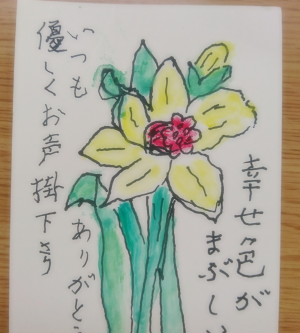 幸せ色が
まぶしい
いつも
優しくお声掛下さり
ありがとう